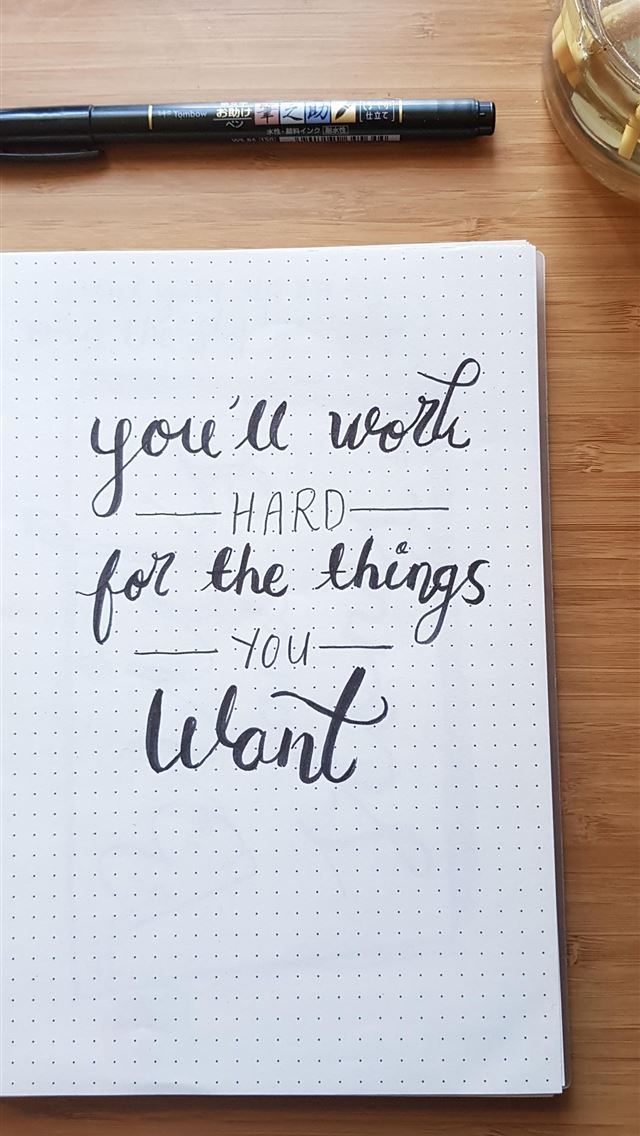 Tombow お助け ペン 筆之助 しっかり仕立て
水性・顔料インク 耐水性
you'll work
HARD
for the things
YOU
Want